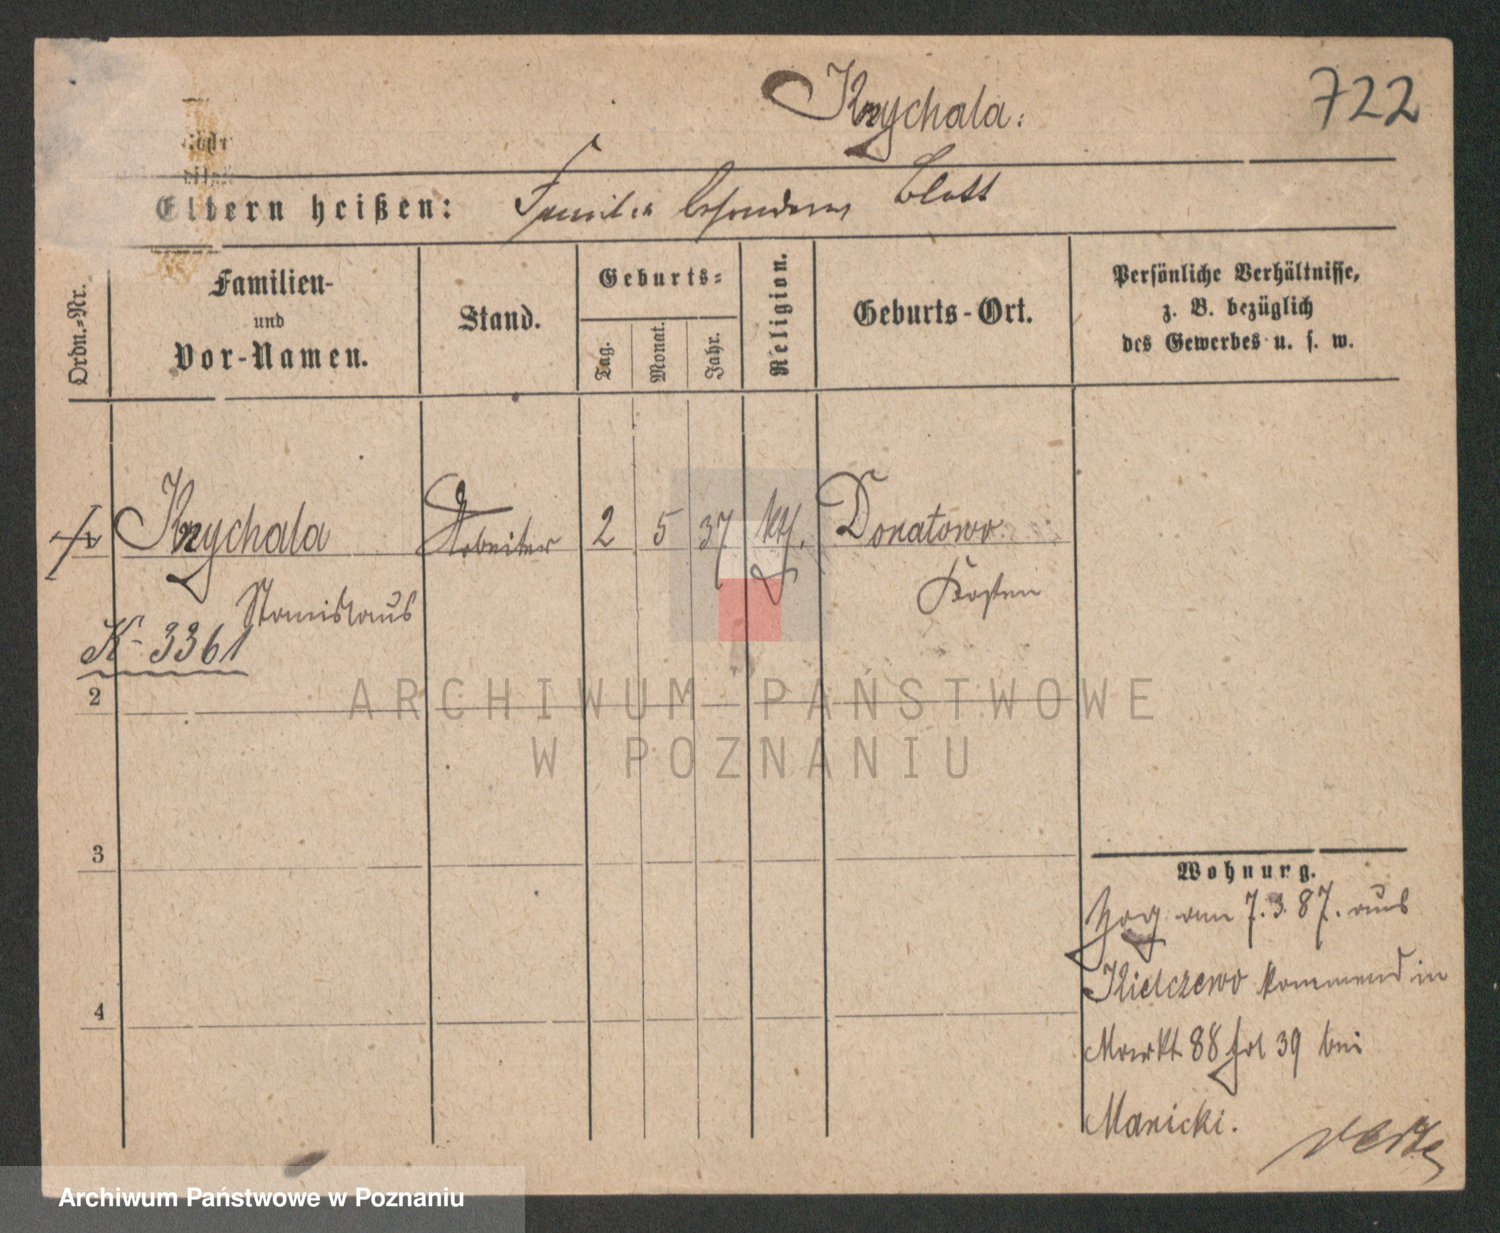 Krychala:
722
Eltern heißen: Familie besonderes Blatt
Ordn.-Nr.
Familien-
und
Vor-Namen.
Stand.
Geburts-
Tag.
Monat.
Jahr.
Religion.
Geburts-Ort.
Persönliche Verhältnisse,
z. B. bezüglich
des Gewerbes u. s. w.
Krychala
Arbeiter
2
5
37
kth.
Donatowo
Stanislaus
Kosten
K-3361
2
ARCHIWUM PAŃSTWOWE
W POZNANIU
3
Wohnung.
Zog am 7.3.87. aus
Kielczewo kommend in
4
Markt 88 fol 39 bei
Manicki.
Archiwum Państwowe w Poznaniu